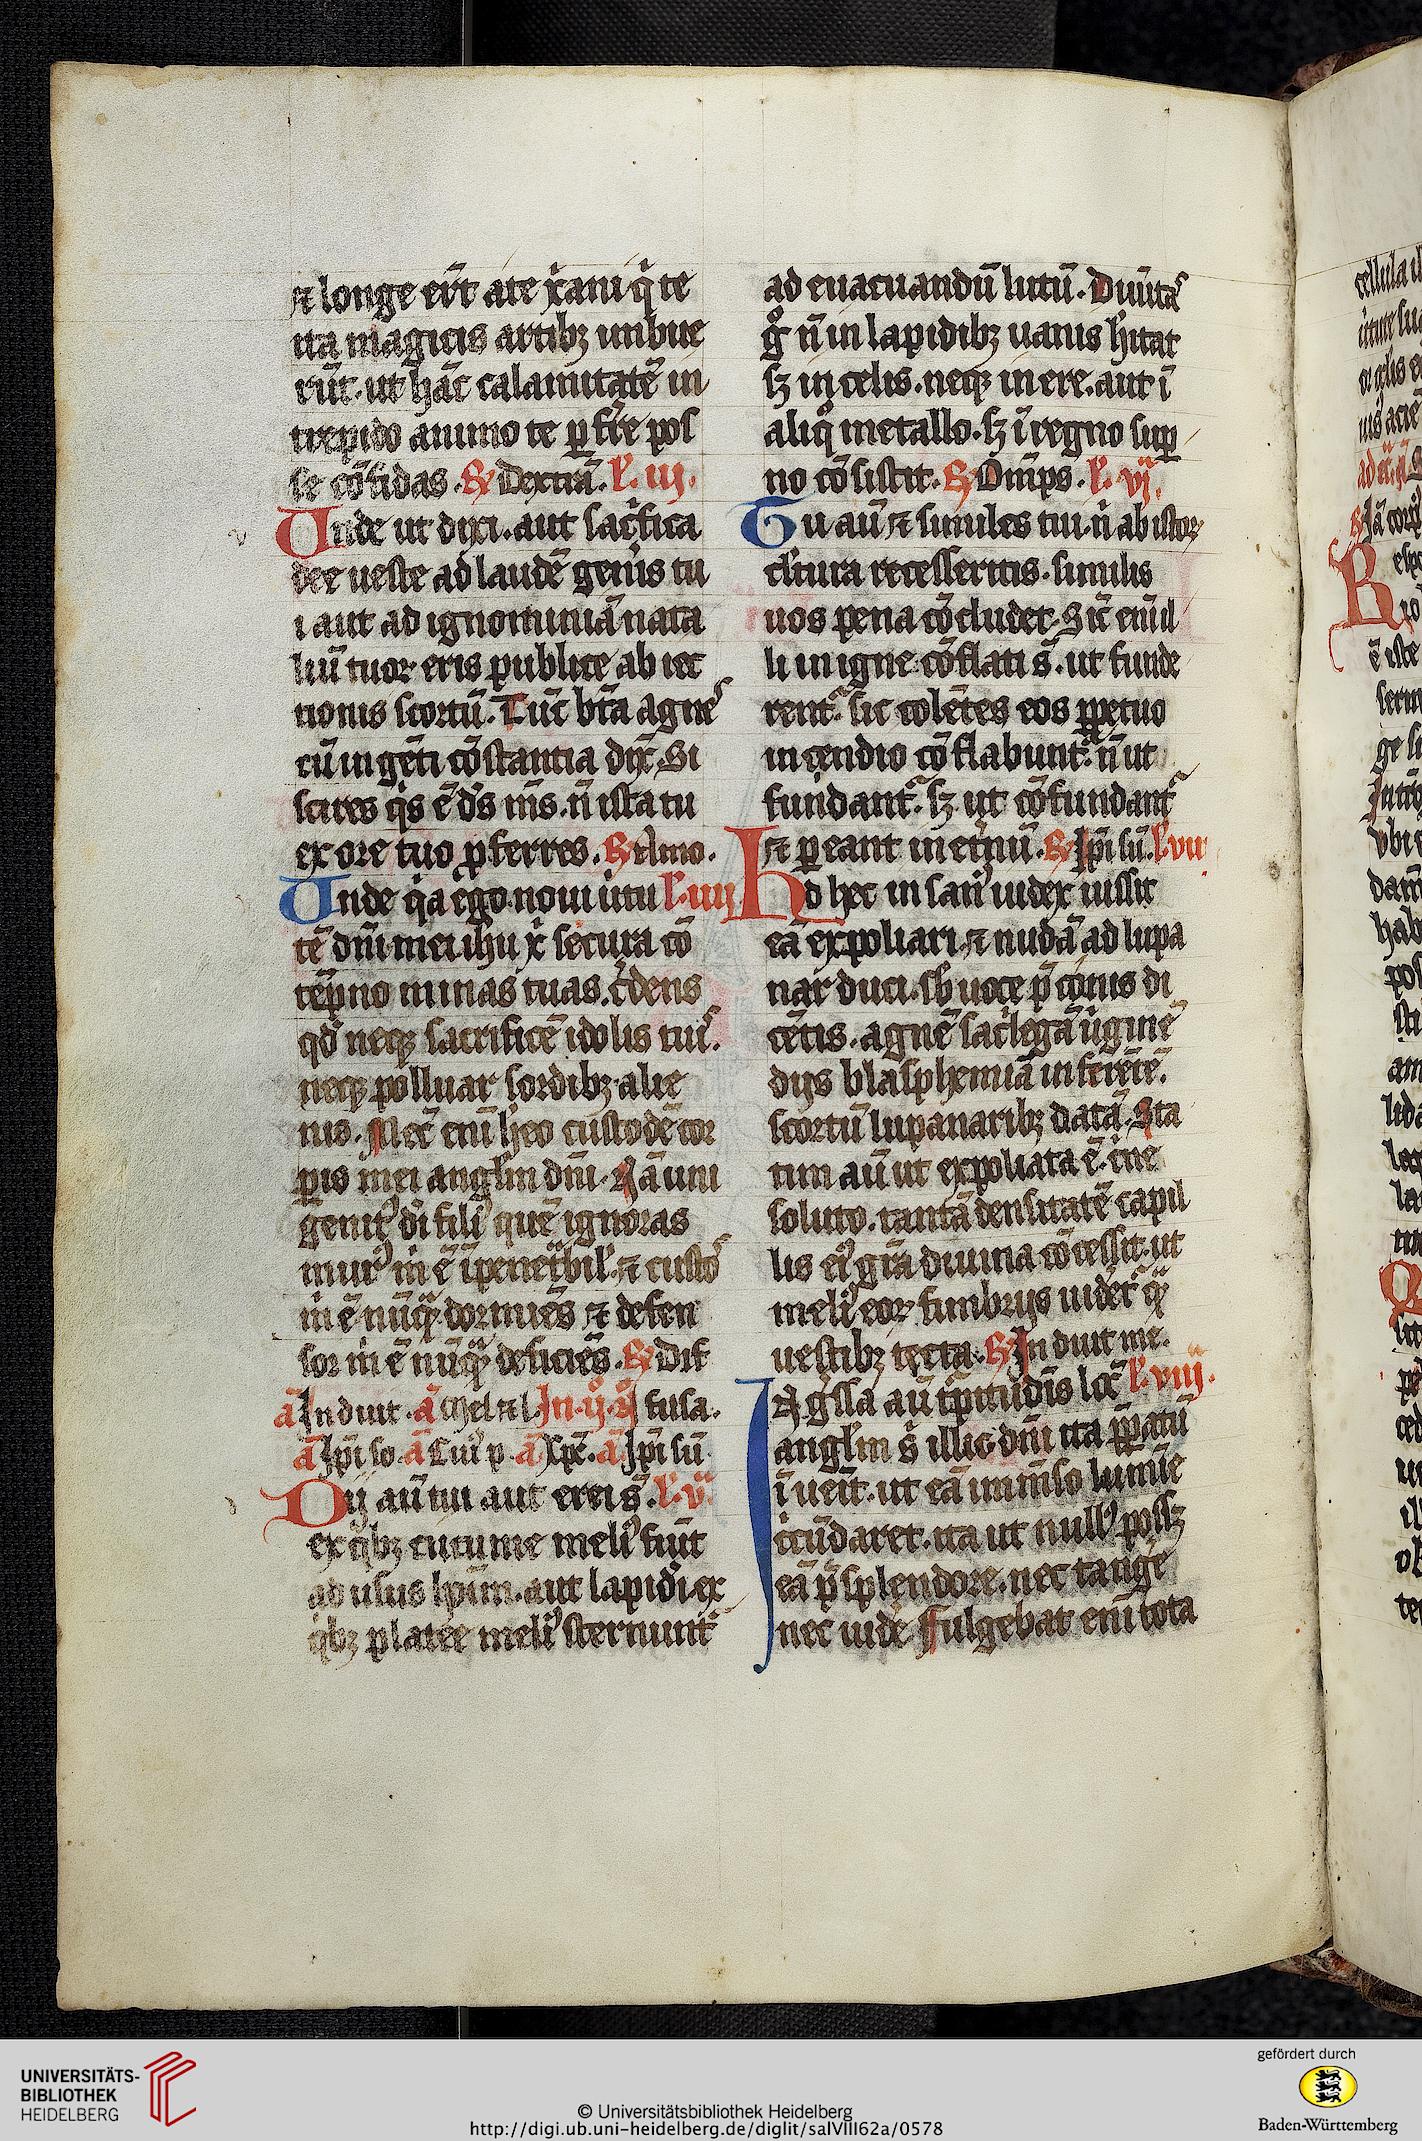 ⁊ longe eru̅t a te xp̅iani q̅ te
ita magicis artibꝫ imbue
ru̅t. ut ha̅c calamitate̅ in
trepido animo te p̲ferre pos
se co̅fidas. R̷ Dextra̅. l̅. iij.
Unde ut dixi. aut sac̅fica
dee ueste ad laude̅ gen̅is tu
i aut ad ignominia̅ nata
liu̅ tuoꝝ eris publice ab iec
tionis scortu̅. Tu̅c bt̅a agnes
cu̅ inge̅ti co̅stantia dix̅. Si
scires q̅s e̅ ds̅ ms̅. n̅ ista tu
ex ore tuo p̲ferres. R̷
Unde q̅a ego noui uirtu l̅. iiij
te̅ dn̅i mei ihu x̅ secura co̅
te̅pno minas tuas. c̅dens
qd̅ neqꝫ sacrifice̅ idolis tuis.
neqꝫ polluar sordibꝫ alie
nis. Mec̅ eni̅ h̅eo custode̅ cor
p̲is mei angl̅m dn̅i. Na̅ uni
genitꝰ di̅ filiꝰ que̅ ignoras
murꝰ m̅ e̅ i̅penet̅bil̅. ⁊ custos
m̅ e̅ nu̅qꝫ dormie̅s ⁊ defen
sor m̅ e̅ nu̅qꝫ deficie̅s. R̷ Dif
a̅ Induit. a̅ Mel ⁊ l. In. ij. n̊ fusa.
a̅ Ip̅i so. a̅ Cuiꝰ p. a̅ Xpc̅. a̅ Ip̅i su̅
Dij au̅ tui aut erei s̅. l̅. v̅.
ex q̅bꝫ cucume meliꝰ fiu̅t
ad usus ho̅im. aut lapidei ex
q̅bꝫ platee meliꝰ sternunt̅
ad euacuandu̅ lutu̅. Diuinitas
g̊ n̅ in lapidibꝫ uanis h̅itat
sꝫ in celis. neqꝫ in ere. aut i̅
aliq̊ metallo. sꝫ i̅ regno sup̲
no co̅sistit. R̷ Om̅ps. l̅. vj.
Tu au̅ ⁊ similes tui. n̅ ab istoꝝ
cl̅tura recesseritis. similis
uos pena co̅cludet. Sic̅ eni̅ il
li in igne co̅flati s̅. ut funde
rent̅. sic cole̅tes eos p̲petuo
incendio co̅flabunt̅. n̅ ut
fundant̅. sꝫ ut co̅fundant̅
⁊ p̲eant in et̅nu̅. R̷ Ip̅i su̅. l̅. vii
Ad hec insanꝰ iudex iussit
ea̅ expoliari. ⁊ nuda̅ ad lupa
nar duci. sb̅ uoce p̅conis di
ce̅tis. agne̅ sac̅lega̅ u̅gine̅
dijs blasphemia̅ infere̅te̅.
scortu̅ lupanaribꝫ data̅. Sta
tim au̅ ut expoliata e̅. c̅ne
soluto. tanta̅ densitate̅ capil
lis eiꝰ gr̅a diuina co̅cessit. ut
meliꝰ eoꝝ fimbrijs uidet̅ qꝫ
uestibꝫ tecta. R̷ Induit me.
Ing̅ssa au̅ t̅pitudi̅s loc̅ l̅. viij.
angl̅m s̅ illic dn̅i ita p̲patu̅
i̅uenit. ut ea̅ imme̅so lumi̅e
circu̅daret. ita ut nullꝰ possꝫ
ea̅ p̅ splendore. nec tange̅
nec uide̅ Fulgebat eni̅ tota
UNIVERSITÄTS-
BIBLIOTHEK
HEIDELBERG
© Universitätsbibliothek Heidelberg
http://digi.ub.uni-heidelberg.de/diglit/salVIII62a/0578
gefördert durch
Baden-Württemberg